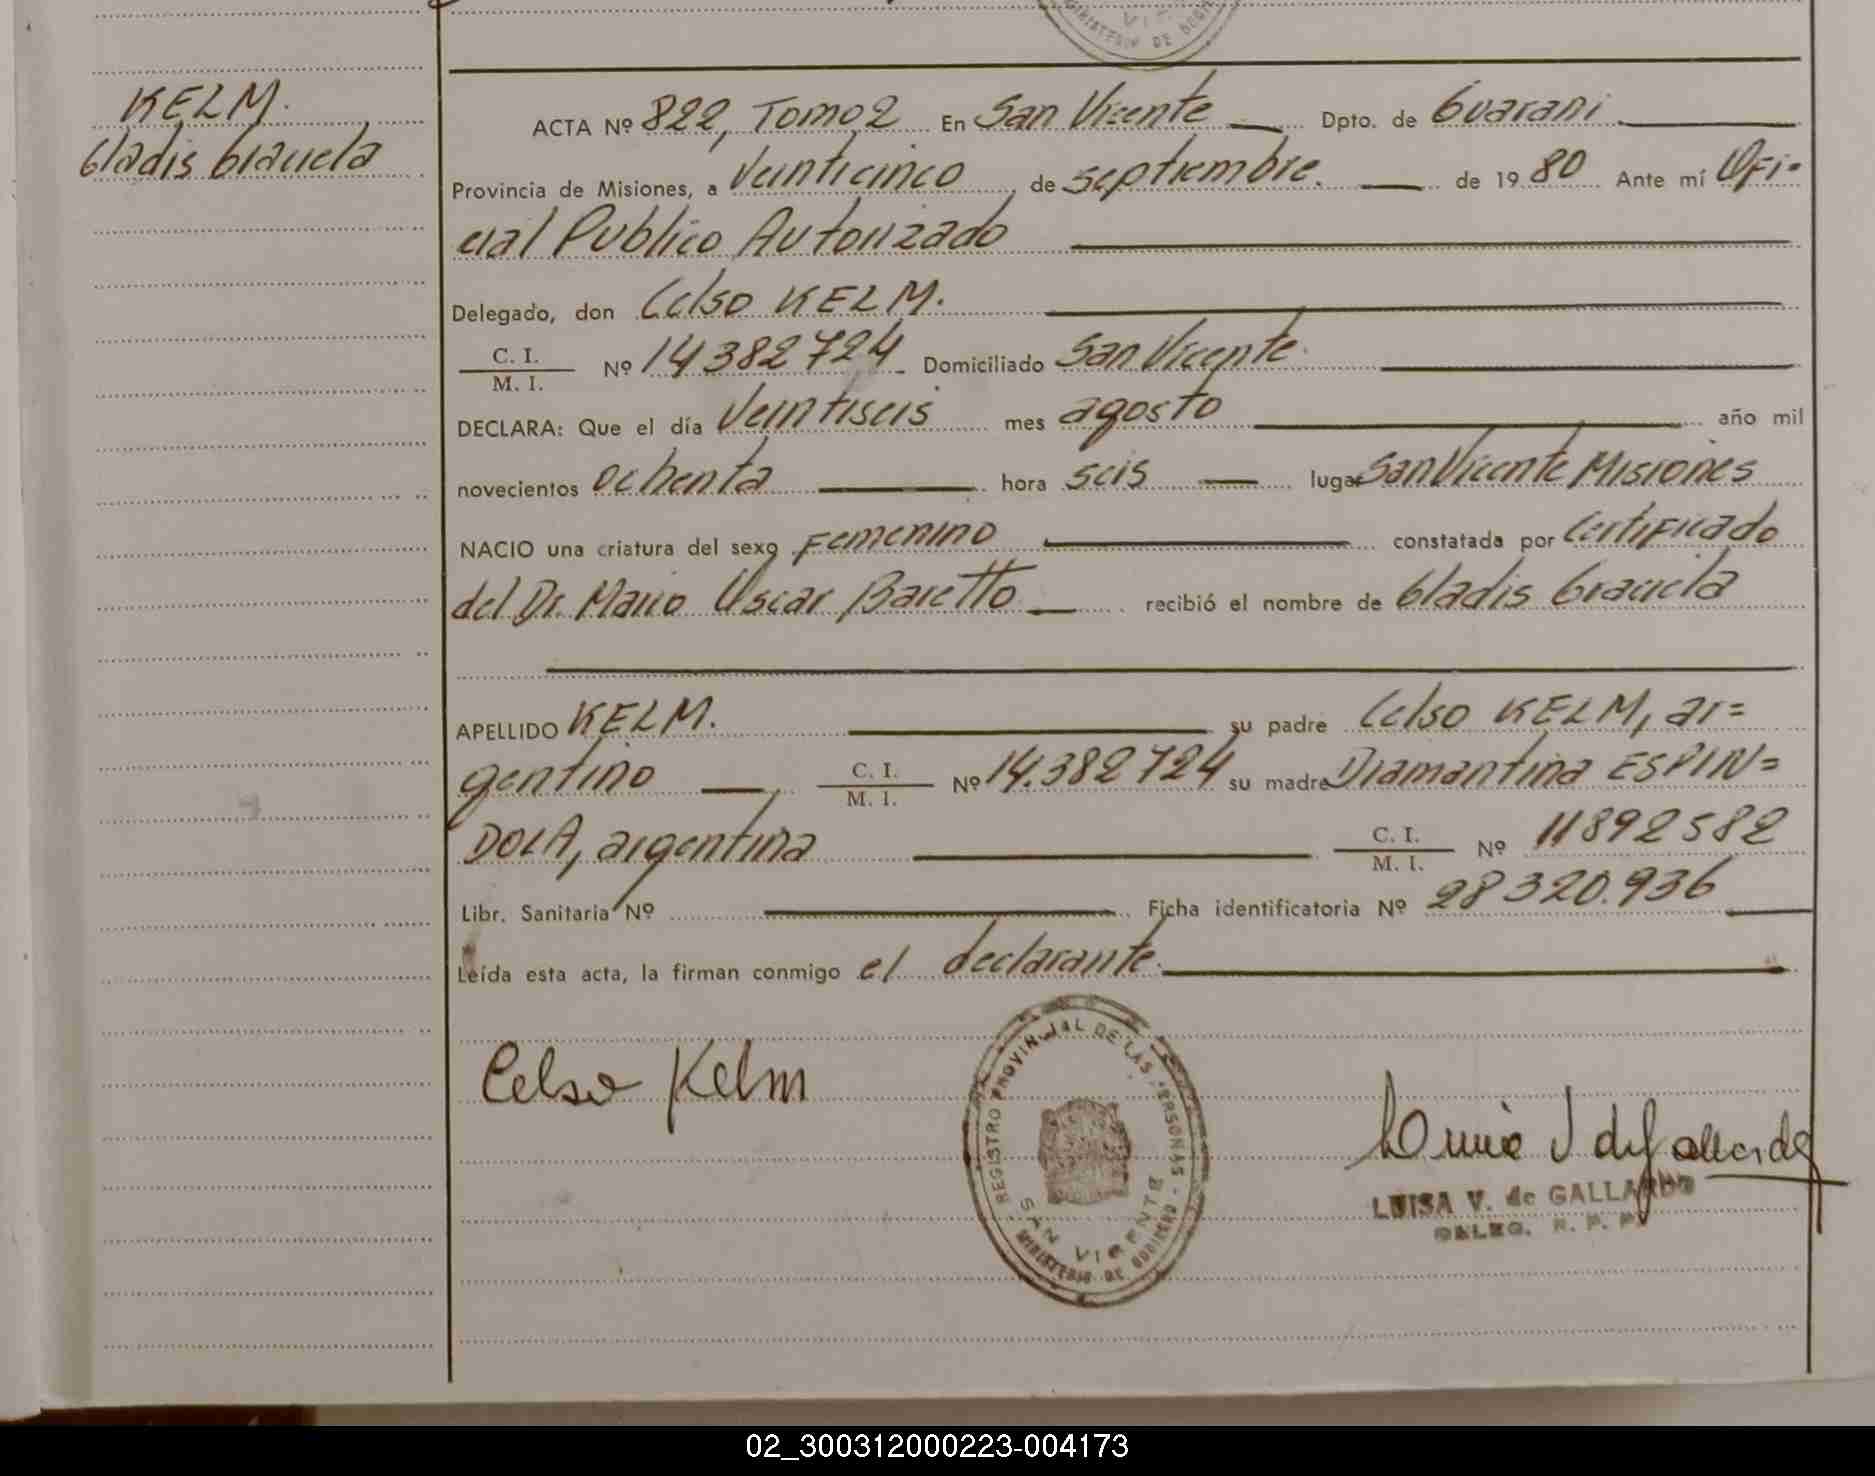 VIC
MINISTERIO DE GOBIE
KELM.
Gladis Graciela
ACTA Nº 822, Tomo 2 En San Vicente Dpto. de Guarani
Provincia de Misiones, a Veinticinco de septiembre. de 1980 Ante mí Ofi-
cial Publico Autorizado
Delegado, don Celso KELM.
C. I.
M. I.
Nº 14382724 Domiciliado San Vicente.
DECLARA: Que el día Veintiseis mes agosto año mil
novecientos ochenta hora seis lugar San Vicente Misiones
NACIO una criatura del sexo Femenino constatada por Certificado
del Dr. Mario Oscar Baretto recibió el nombre de Gladis Graciela
APELLIDO KELM. su padre Celso KELM, ar=
gentino C. I. / M. I. Nº 14.382724 su madre Diamantina ESPIN=
DOLA, argentina C. I. / M. I. Nº 11892582
Libr. Sanitaria Nº Ficha identificatoria Nº 28320.936
Leída esta acta, la firman conmigo el declarante.
Celso Kelm
REGISTRO PROVINCIAL DE LAS PERSONAS
SAN VICENTE
MINISTERIO DE GOBIERNO
Luisa V de Gallardo
LUISA V. de GALLARDO
DELEG. R. P. P.
02_300312000223-004173